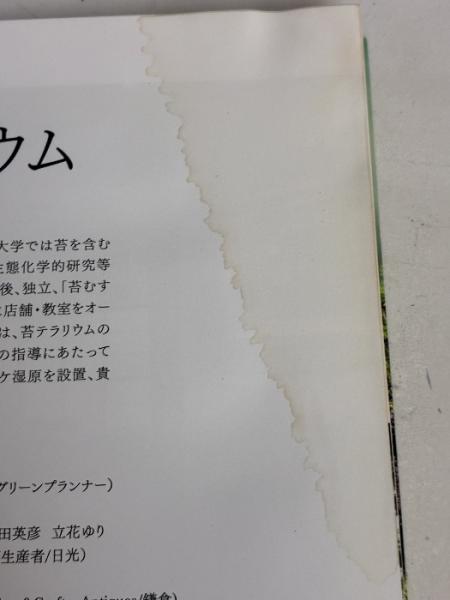 ウム
大学では苔を含む
生態化学的研究等
後、独立、「苔むす
店舗・教室をオー
は、苔テラリウムの
の指導にあたって
ケ湿原を設置、貴
グリーンプランナー)
田英彦 立花ゆり
生産者/日光)
& Crafts Antiques/鎌倉)